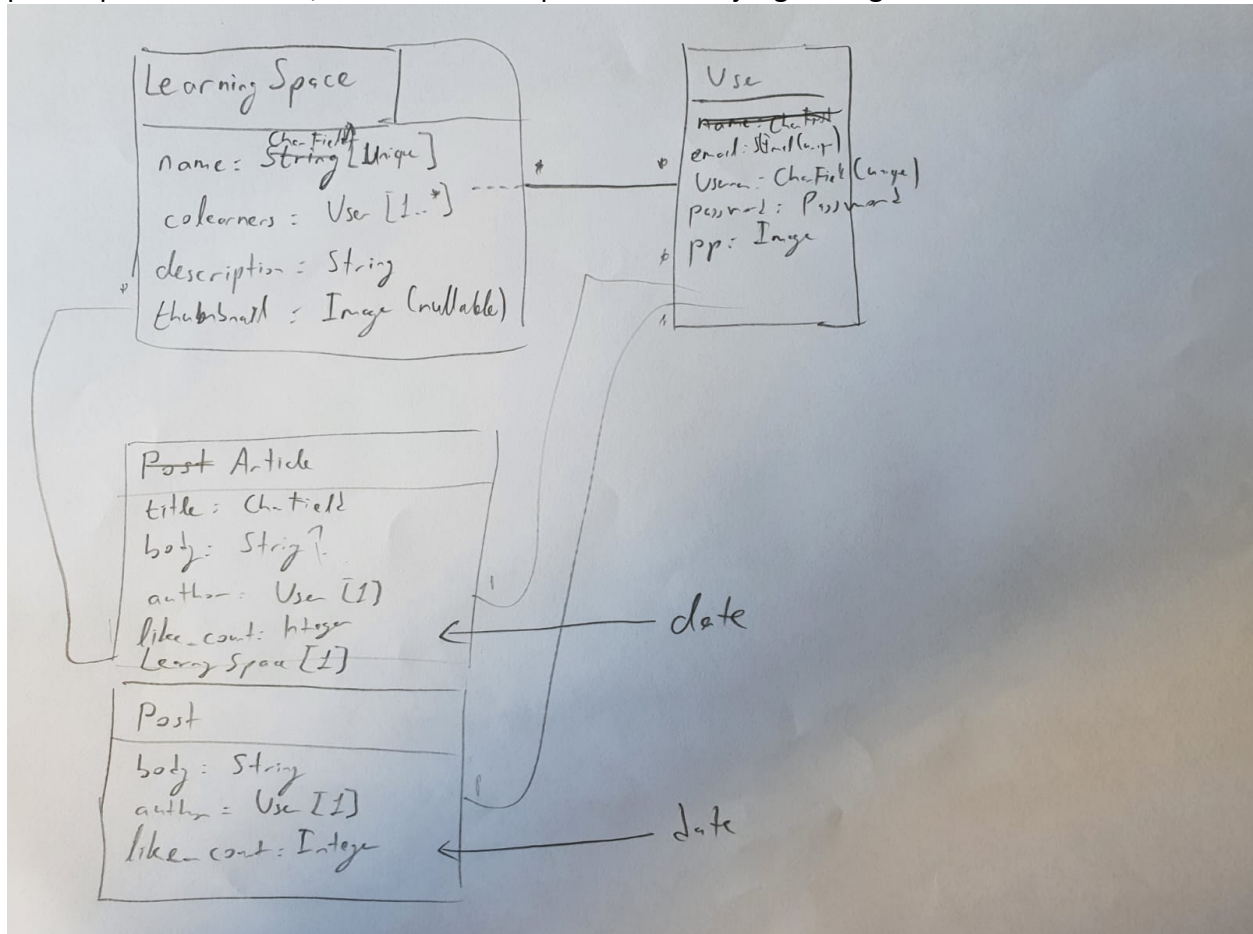 Learning Space
CharField
name: String [Unique]
colearners: User [1..*]
description: String
thumbnail: Image (nullable)
User
name: CharField
email: (unique)
Username: CharField (unique)
password: Password
pp: Image
* *
Post Article
title: CharField
body: String?
author: User [1]
like_count: Integer
Learning Space [1]
date
Post
body: String
author: User [1]
like_count: Integer
date